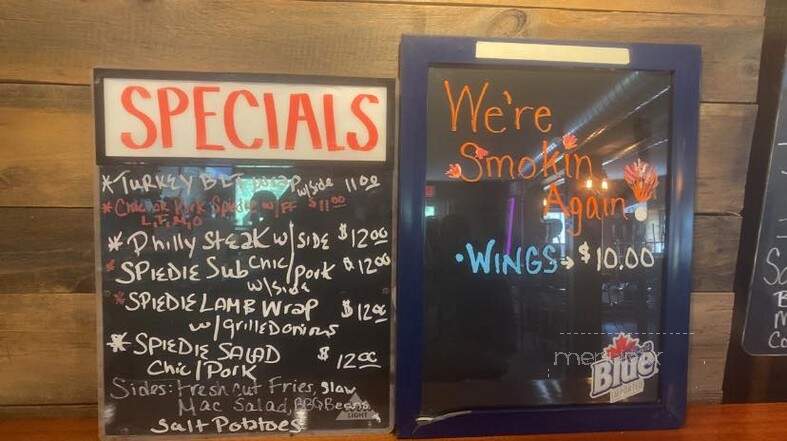 SPECIALS
*TURKEY BLT Wrap w/side 11.00
* Chic or Pork Spiedie w/ FF $11.00
L,T,M,O
* Philly Steak w/ SIDE $12.00
* SPIEDIE Sub Chic/Pork $12.00
w/side
* SPIEDIE LAMB Wrap $12.00
w/grilled onions
* SPIEDIE SALAD $12.00
Chic/Pork
Sides: Fresh cut Fries, slaw
Mac Salad, BBQ Beans
Salt Potatoes
LIGHT
We're
Smokin
Again!
• WINGS → $10.00
Blue